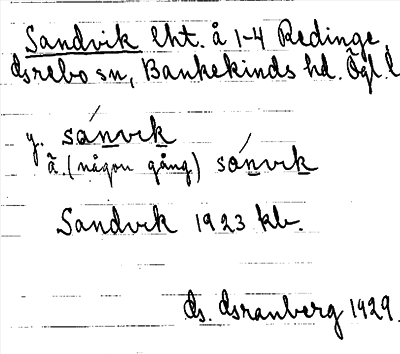 Sandvik lht. å 1-4 Redinge,
Åsrebo sn, Bankekinds hd. Ögl l
y. sanvik
ä. (någon gång) sanvik
Sandvik 1923 kb.
Ds. Dsranberg 1929.